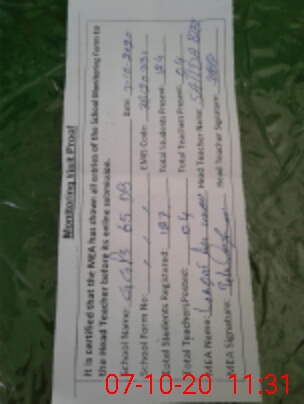 Monitoring Visit Proof
It is certified that the MEA has shown all entries of the School Monitoring Form to
the Head Teacher before its online submission.
School Name: GGPS 65 DB Date: 7-10-2020
School Form No: EMIS Code:
Total Students Registered: 187 Total Students Present: 124
Total Teachers Posted: 04 Total Teachers Present: 04
MEA Name: Head Teacher Name:
MEA Signature: Head Teacher Signature:
07-10-20 11:31